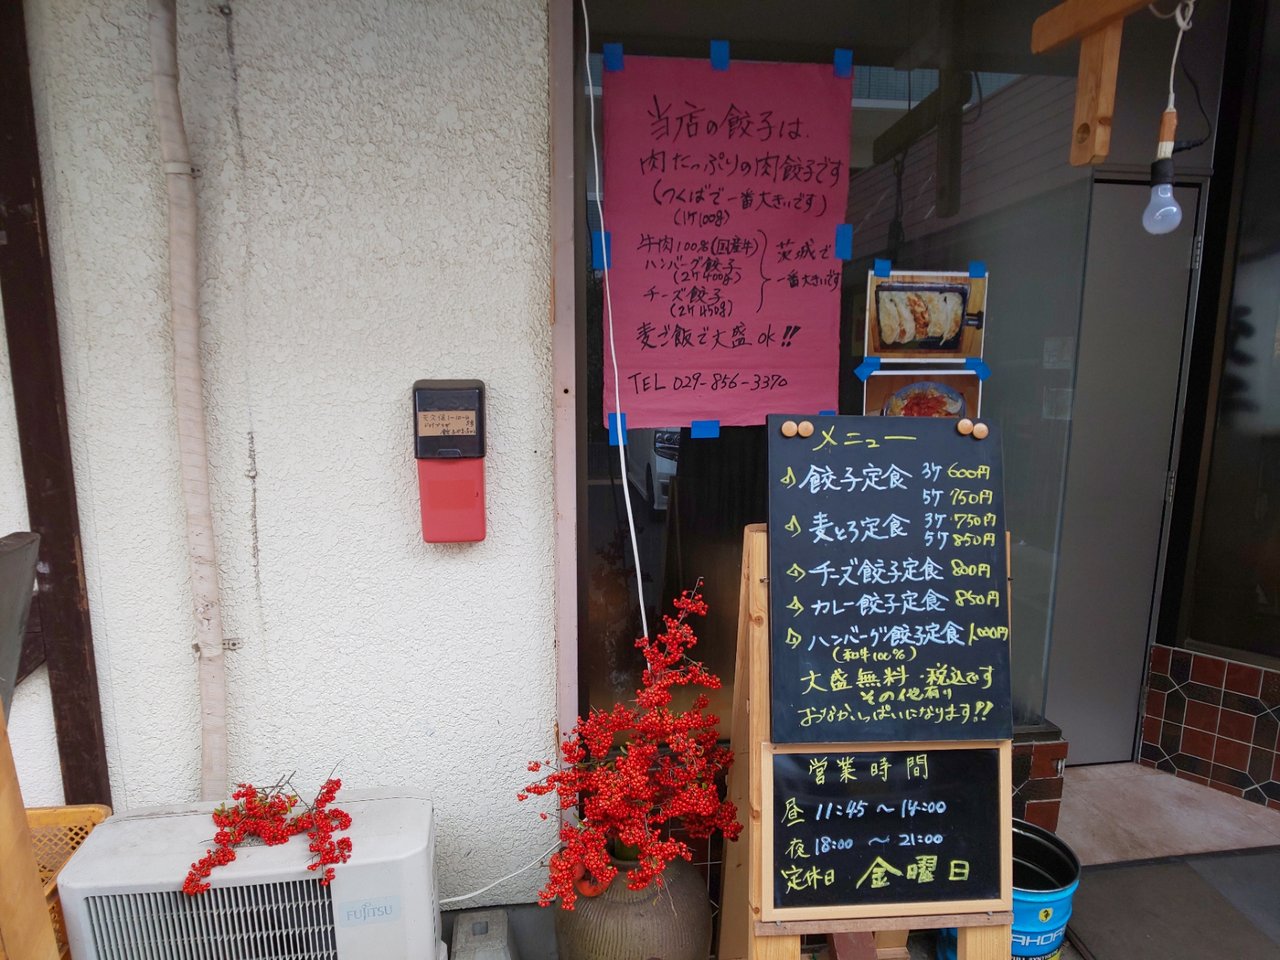 当店の餃子は、
肉たっぷりの肉餃子です
(つくばで一番大きいです)
(1ケ100g)
牛肉100%(国産牛)
ハンバーグ餃子
(2ケ400g)
チーズ餃子
(2ケ450g)
茨城で
一番大きいです
麦ご飯で大盛ok!!
TEL 029-856-3370
メニュー
餃子定食 3ケ 600円
5ケ 750円
麦とろ定食 3ケ 750円
5ケ 850円
チーズ餃子定食 800円
カレー餃子定食 850円
ハンバーグ餃子定食 1,000円
(和牛100%)
大盛無料・税込です
その他有り
おなかいっぱいになります!!
営業時間
昼 11:45 ~ 14:00
夜 18:00 ~ 21:00
定休日 金曜日
FUJITSU